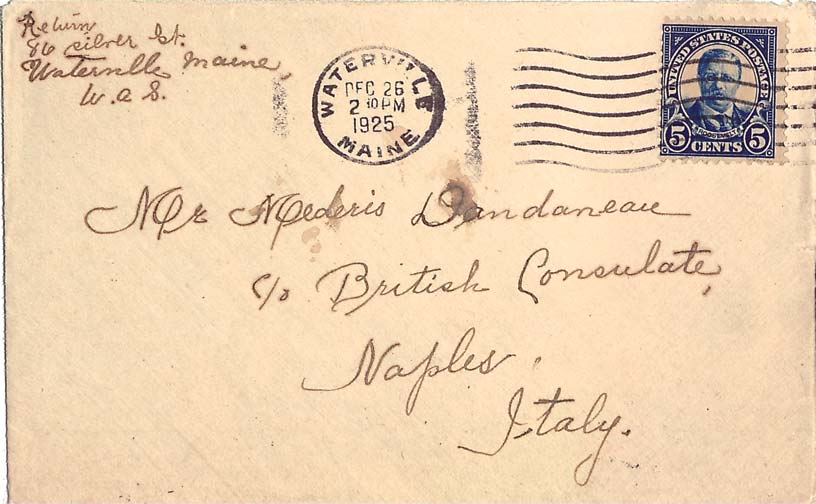 Return
86 Silver St.
Waterville Maine,
U. a S.
WATERVILLE
DEC 26
2 30 PM
1925
MAINE
UNITED STATES POSTAGE
ROOSEVELT
5 CENTS 5
Mr Mederis Dandaneau
c/o British Consulate,
Naples,
Italy.